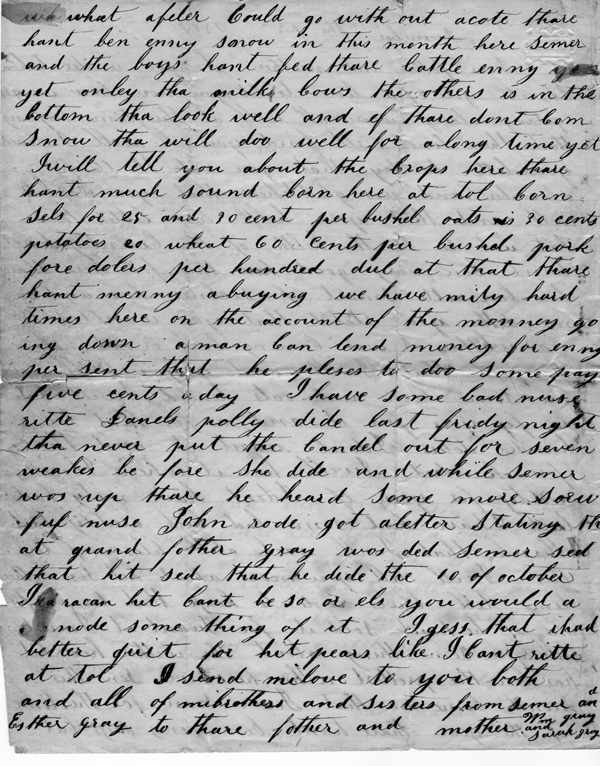 what afeler Could go with out acote thare
hant ben enny snow in this month here Semer
and the boys hant fed thare Cattle enny
yet onley tha milk Cows the others is in the
bottom tha look well and ef thare dont Com
Snow tha will doo well for along time yet
I will tell you about the Crops here thare
hant much sound Corn here at tol Corn
Sels for 25 and 30 cent per bushel oats is 30 cents
potatoes 20 wheat 60 Cents per bushel pork
fore dolers per hundred dul at that thare
hant menny abuying we have mity hard
times here on the account of the monney go
ing down aman Can lend money for enny
per sent that he pleses to doo some pay
five cents aday I have some bad nuse
ritte Danels polly dide last fridy night
tha never put the Candel out for seven
weakes be fore She dide and while Semer
wos up thare he heard Some more Sorw
ful nuse John rode got aletter Stating th
at grand fother gray wos ded Semer sed
that hit sed that he dide the 10 of october
I racan hit Cant be so or els you would a
node some thing of it I gess that ihad
better quit for hit pears like I Cant ritte
at tol I send milove to you both
and all of mibrothers and Sisters from Semer and
Esther gray to thare fother and mother Wm gray
and Sarah gray